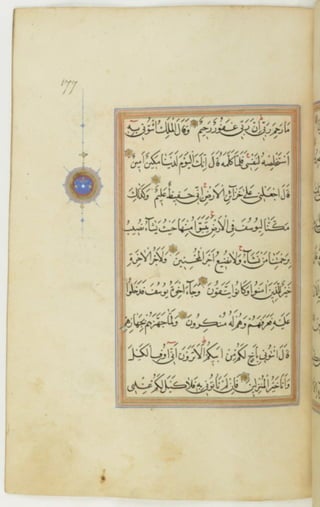 ١٧٧
مَا رَحِمَ رَبِّي إِنَّ رَبِّي غَفُورٌ رَحِيمٌ وَقَالَ الْمَلِكُ ائْتُونِي بِهِ
أَسْتَخْلِصْهُ لِنَفْسِي فَلَمَّا كَلَّمَهُ قَالَ إِنَّكَ الْيَوْمَ لَدَيْنَا مَكِينٌ أَمِينٌ
قَالَ اجْعَلْنِي عَلَى خَزَائِنِ الْأَرْضِ إِنِّي حَفِيظٌ عَلِيمٌ وَكَذَلِكَ
مَكَّنَّا لِيُوسُفَ فِي الْأَرْضِ يَتَبَوَّأُ مِنْهَا حَيْثُ يَشَاءُ نُصِيبُ
بِرَحْمَتِنَا مَنْ نَشَاءُ وَلَا نُضِيعُ أَجْرَ الْمُحْسِنِينَ وَلَأَجْرُ الْآخِرَةِ
خَيْرٌ لِلَّذِينَ آمَنُوا وَكَانُوا يَتَّقُونَ وَجَاءَ إِخْوَةُ يُوسُفَ فَدَخَلُوا
عَلَيْهِ فَعَرَفَهُمْ وَهُمْ لَهُ مُنْكِرُونَ وَلَمَّا جَهَّزَهُمْ بِجَهَازِهِمْ
قَالَ ائْتُونِي بِأَخٍ لَكُمْ مِنْ أَبِيكُمْ أَلَا تَرَوْنَ أَنِّي أُوفِي الْكَيْلَ
وَأَنَا خَيْرُ الْمُنْزِلِينَ فَإِنْ لَمْ تَأْتُونِي بِهِ فَلَا كَيْلَ لَكُمْ عِنْدِي